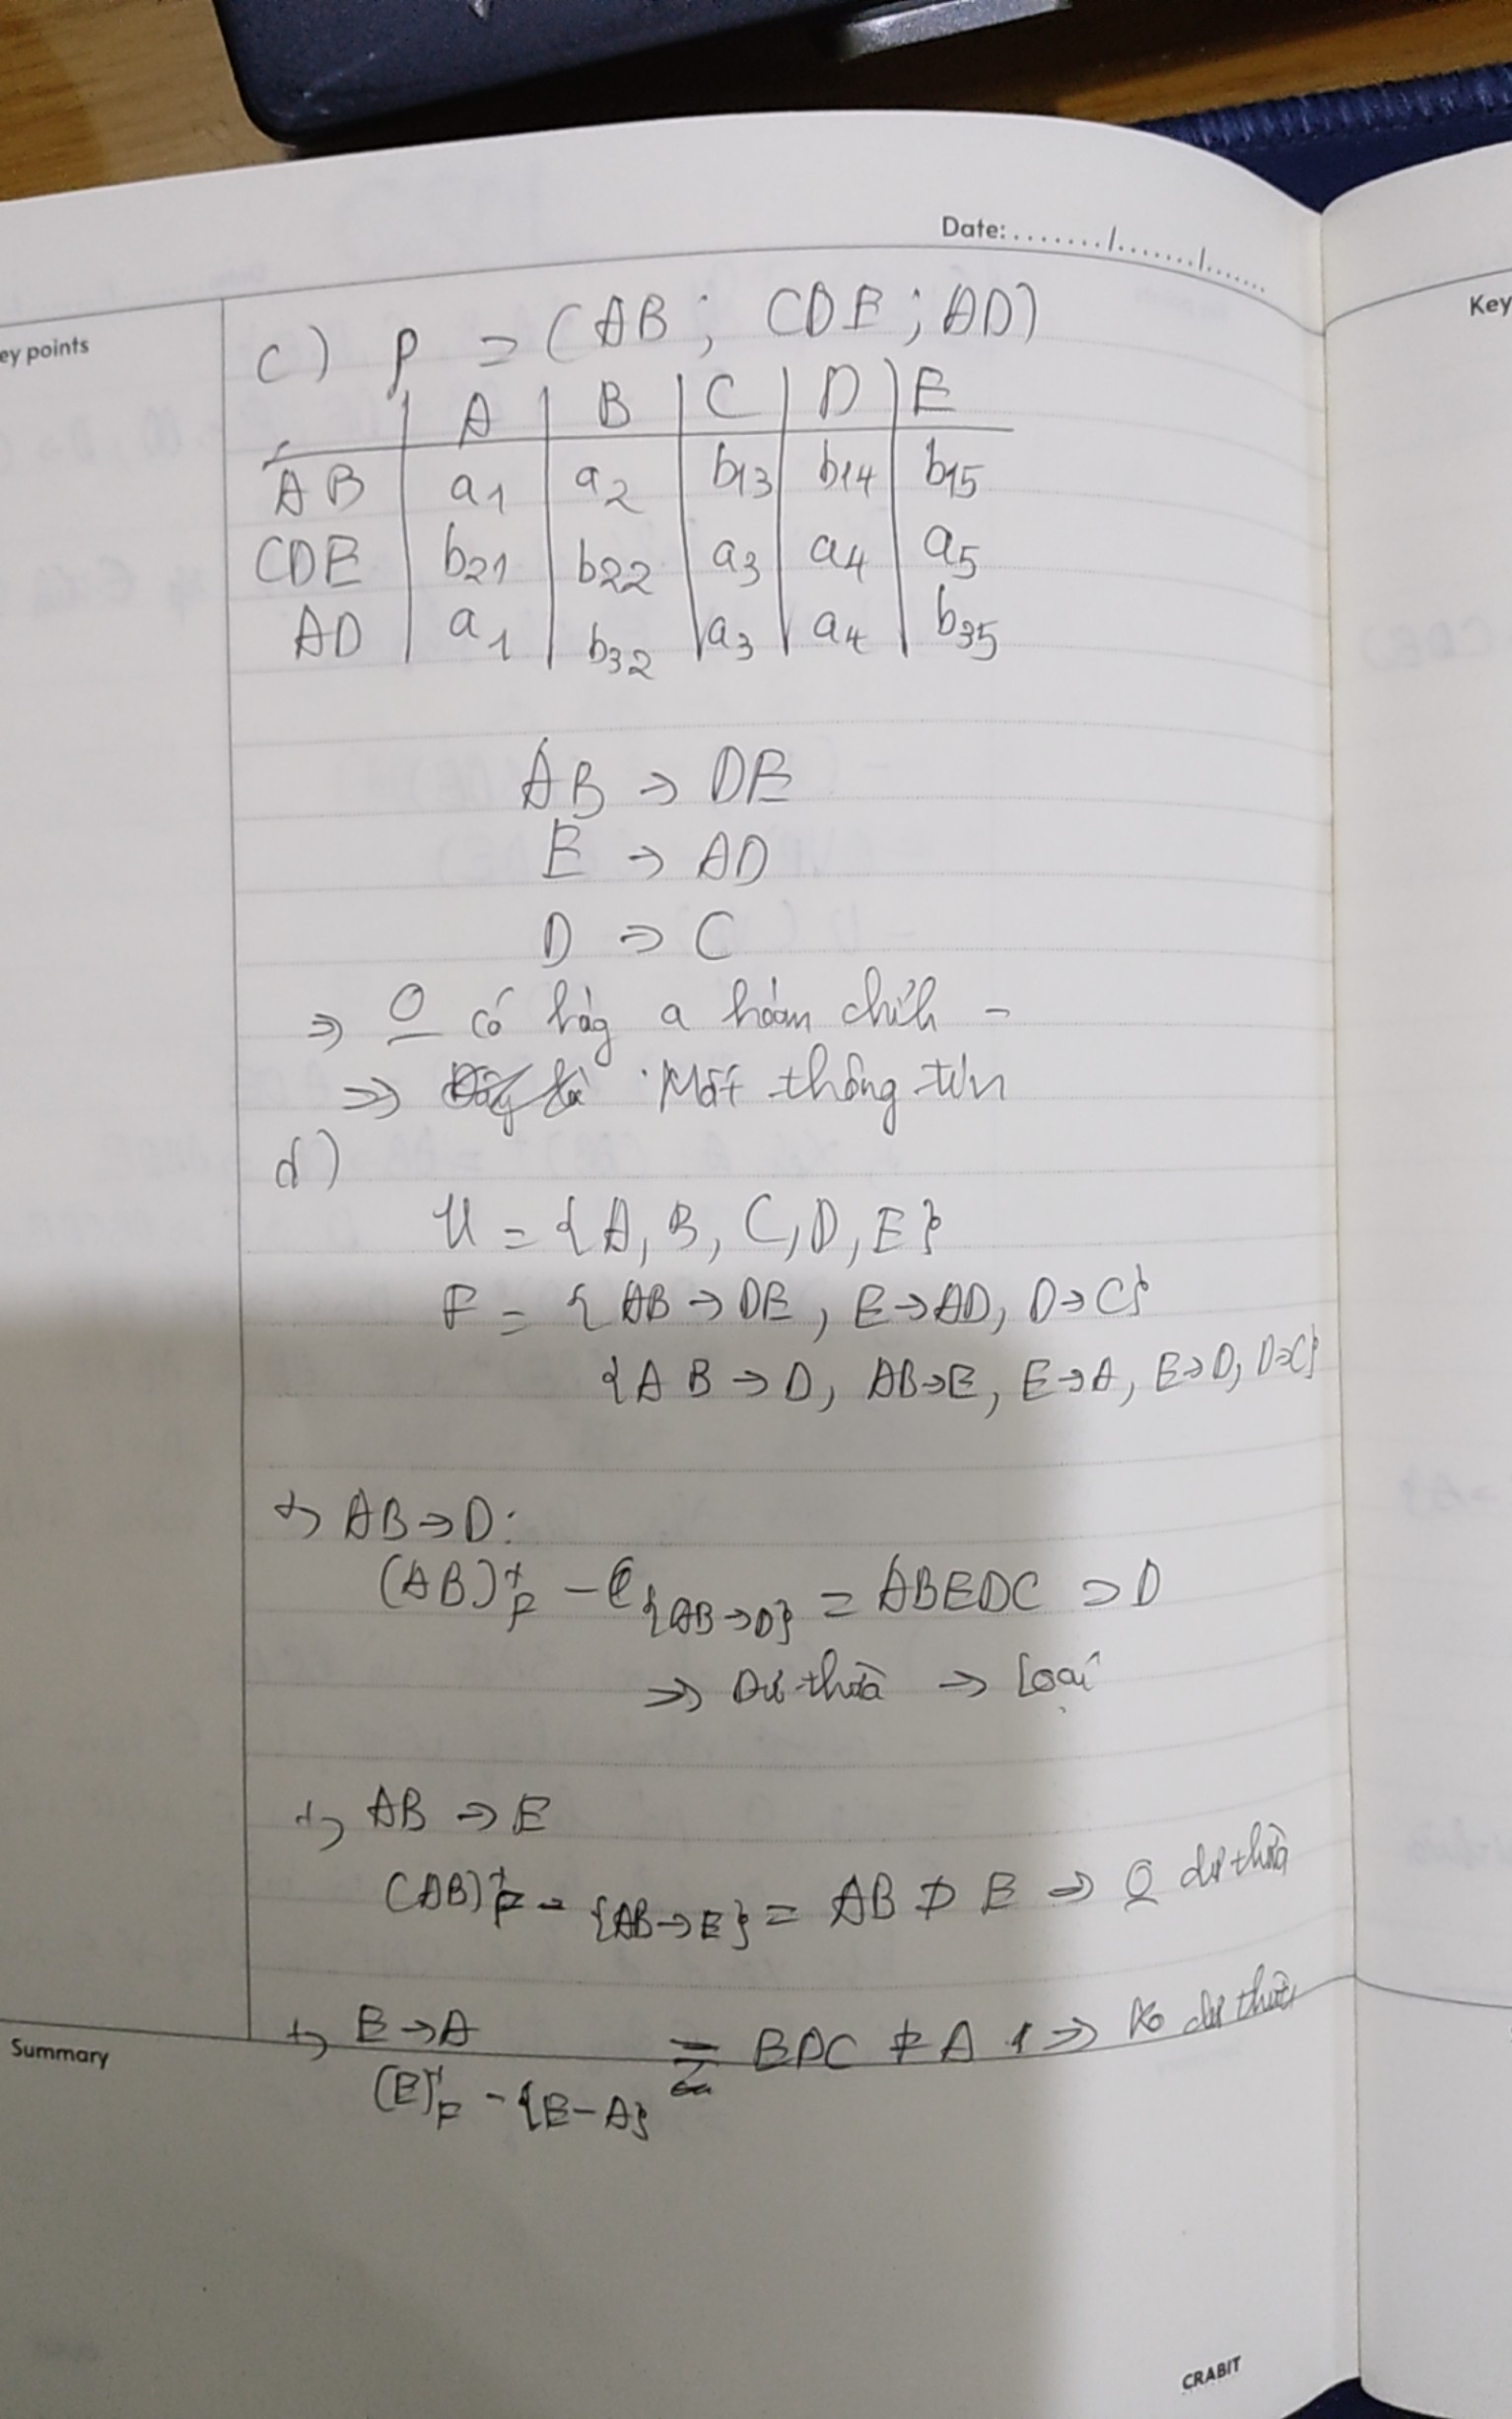 Date: ......./......./.......
Key
ey points
c) ρ = (AB ; CDE ; AD)
A | B | C | D | E
AB | a1 | a2 | b13 | b14 | b15
CDE | b21 | b22 | a3 | a4 | a5
AD | a1 | b32 | a3 | a4 | b35
AB → DE
E → AD
D → C
⇒ O có hàg a hoàn chỉh -
⇒ Mất thông tin
d)
U = {A, B, C, D, E}
F = {AB → DE, E → AD, D → C}
{AB → D, AB → E, E → A, E → D, D → C}
+, AB → D:
(AB)+F - {AB → D} = ABEDC ⊃ D
⇒ Dư thừa → Loại
+, AB → E
(AB)+F - {AB → E} = AB ⊅ E ⇒ O dư thừa
+, E → A
(E)+F - {E - A} = EDC ⊅ A ⇒ Ko dư thừa
Summary
CRABIT